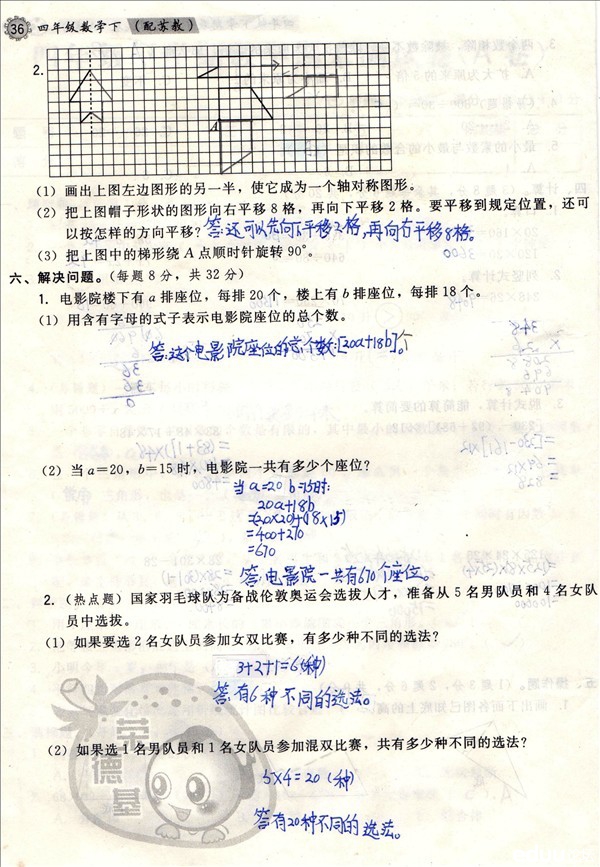 36 四年级数学下 (配苏教)
2.
A
(1) 画出上图左边图形的另一半，使它成为一个轴对称图形。
(2) 把上图帽子形状的图形向右平移 8 格，再向下平移 2 格。要平移到规定位置，还可
以按怎样的方向平移？答:还可以先向下平移2格,再向右平移8格。
(3) 把上图中的梯形绕 A 点顺时针旋转 90°。
六、解决问题。(每题 8 分，共 32 分)
1. 电影院楼下有 a 排座位，每排 20 个，楼上有 b 排座位，每排 18 个。
(1) 用含有字母的式子表示电影院座位的总个数。
答:这个电影院座位的总个数:[20a+18b]个。
(2) 当 a=20，b=15 时，电影院一共有多少个座位？
当 a=20 b=15时:
20a+18b
=(20×20)+(18×15)
=400+270
=670
答:电影院一共有670个座位。
2. (热点题) 国家羽毛球队为备战伦敦奥运会选拔人才，准备从 5 名男队员和 4 名女队
员中选拔。
(1) 如果要选 2 名女队员参加女双比赛，有多少种不同的选法？
3+2+1=6(种)
答:有6种不同的选法。
(2) 如果选 1 名男队员和 1 名女队员参加混双比赛，共有多少种不同的选法？
5×4=20 (种)
答:有20种不同的选法。
荣德基